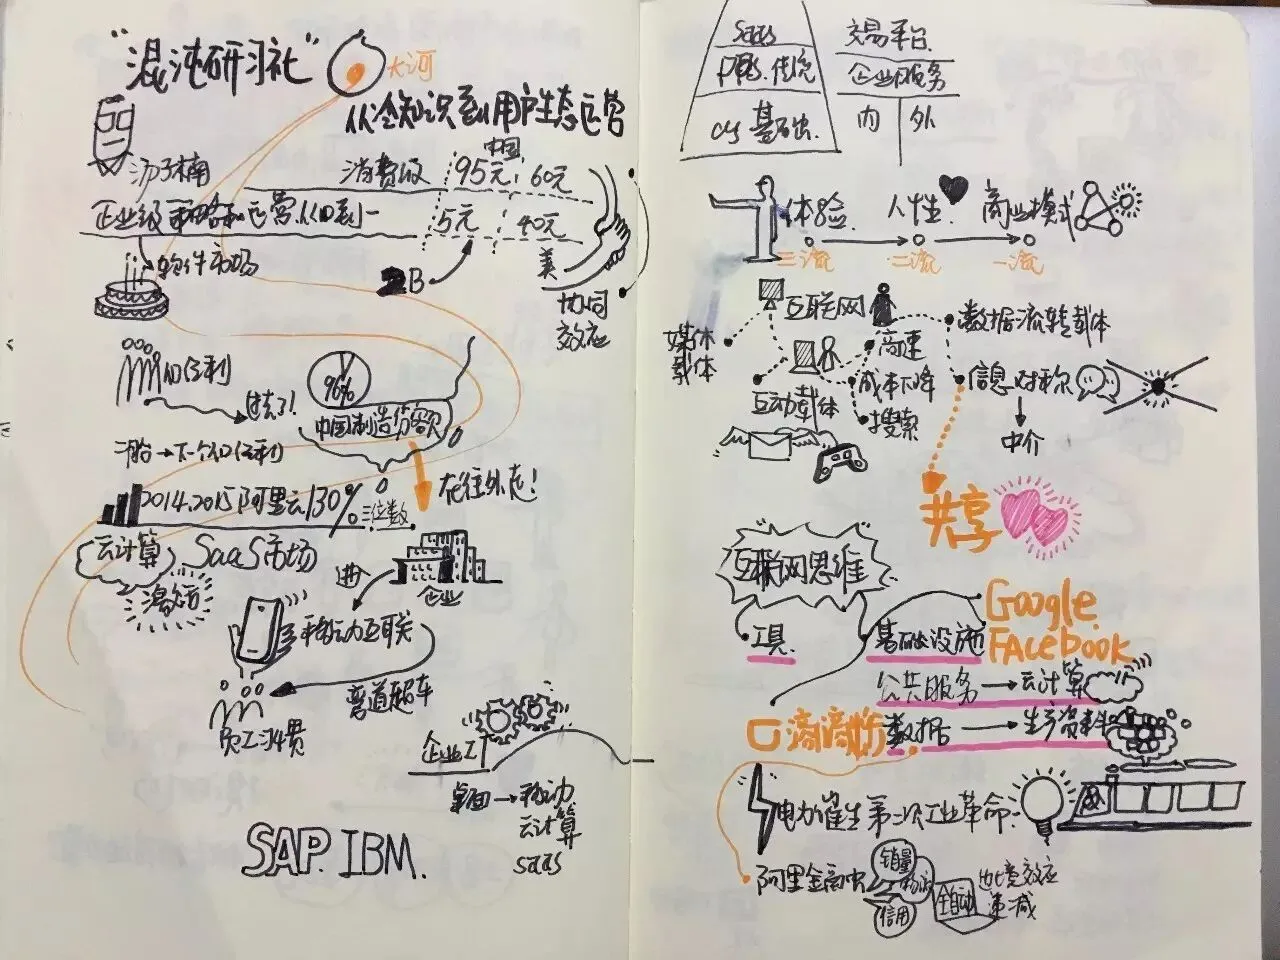 "混沌研习社"
大河
从冷知识到用户生态运营
汤子楠
消费级
中国
95元
60元
企业级
运营从0到一
5元
40元
美
2B
协同
效应
软件市场
人口红利
过去了!
96%
中国制造份额
下个人口红利
在往外走!
2014.2015阿里云130%
三位数
云计算
SaaS市场
激活
企业
移动互联
弯道超车
员工习惯
企业IT
桌面→移动
云计算
SaaS
SAP. IBM.
SaaS
传统
OS 基础
交易平台
企业服务
内
外
体验
人性
商业模式
三流
二流
一流
互联网
数据流转载体
媒体
载体
高速
成本下降
搜索
信息对称
互动载体
中介
共享
互联网思维
工具
基础设施
Google
FAcebook
公共服务→云计算
滴滴
数据→生产资料
电力催生第二次工业革命
阿里金融
销量
信用
全自动
效应
递减